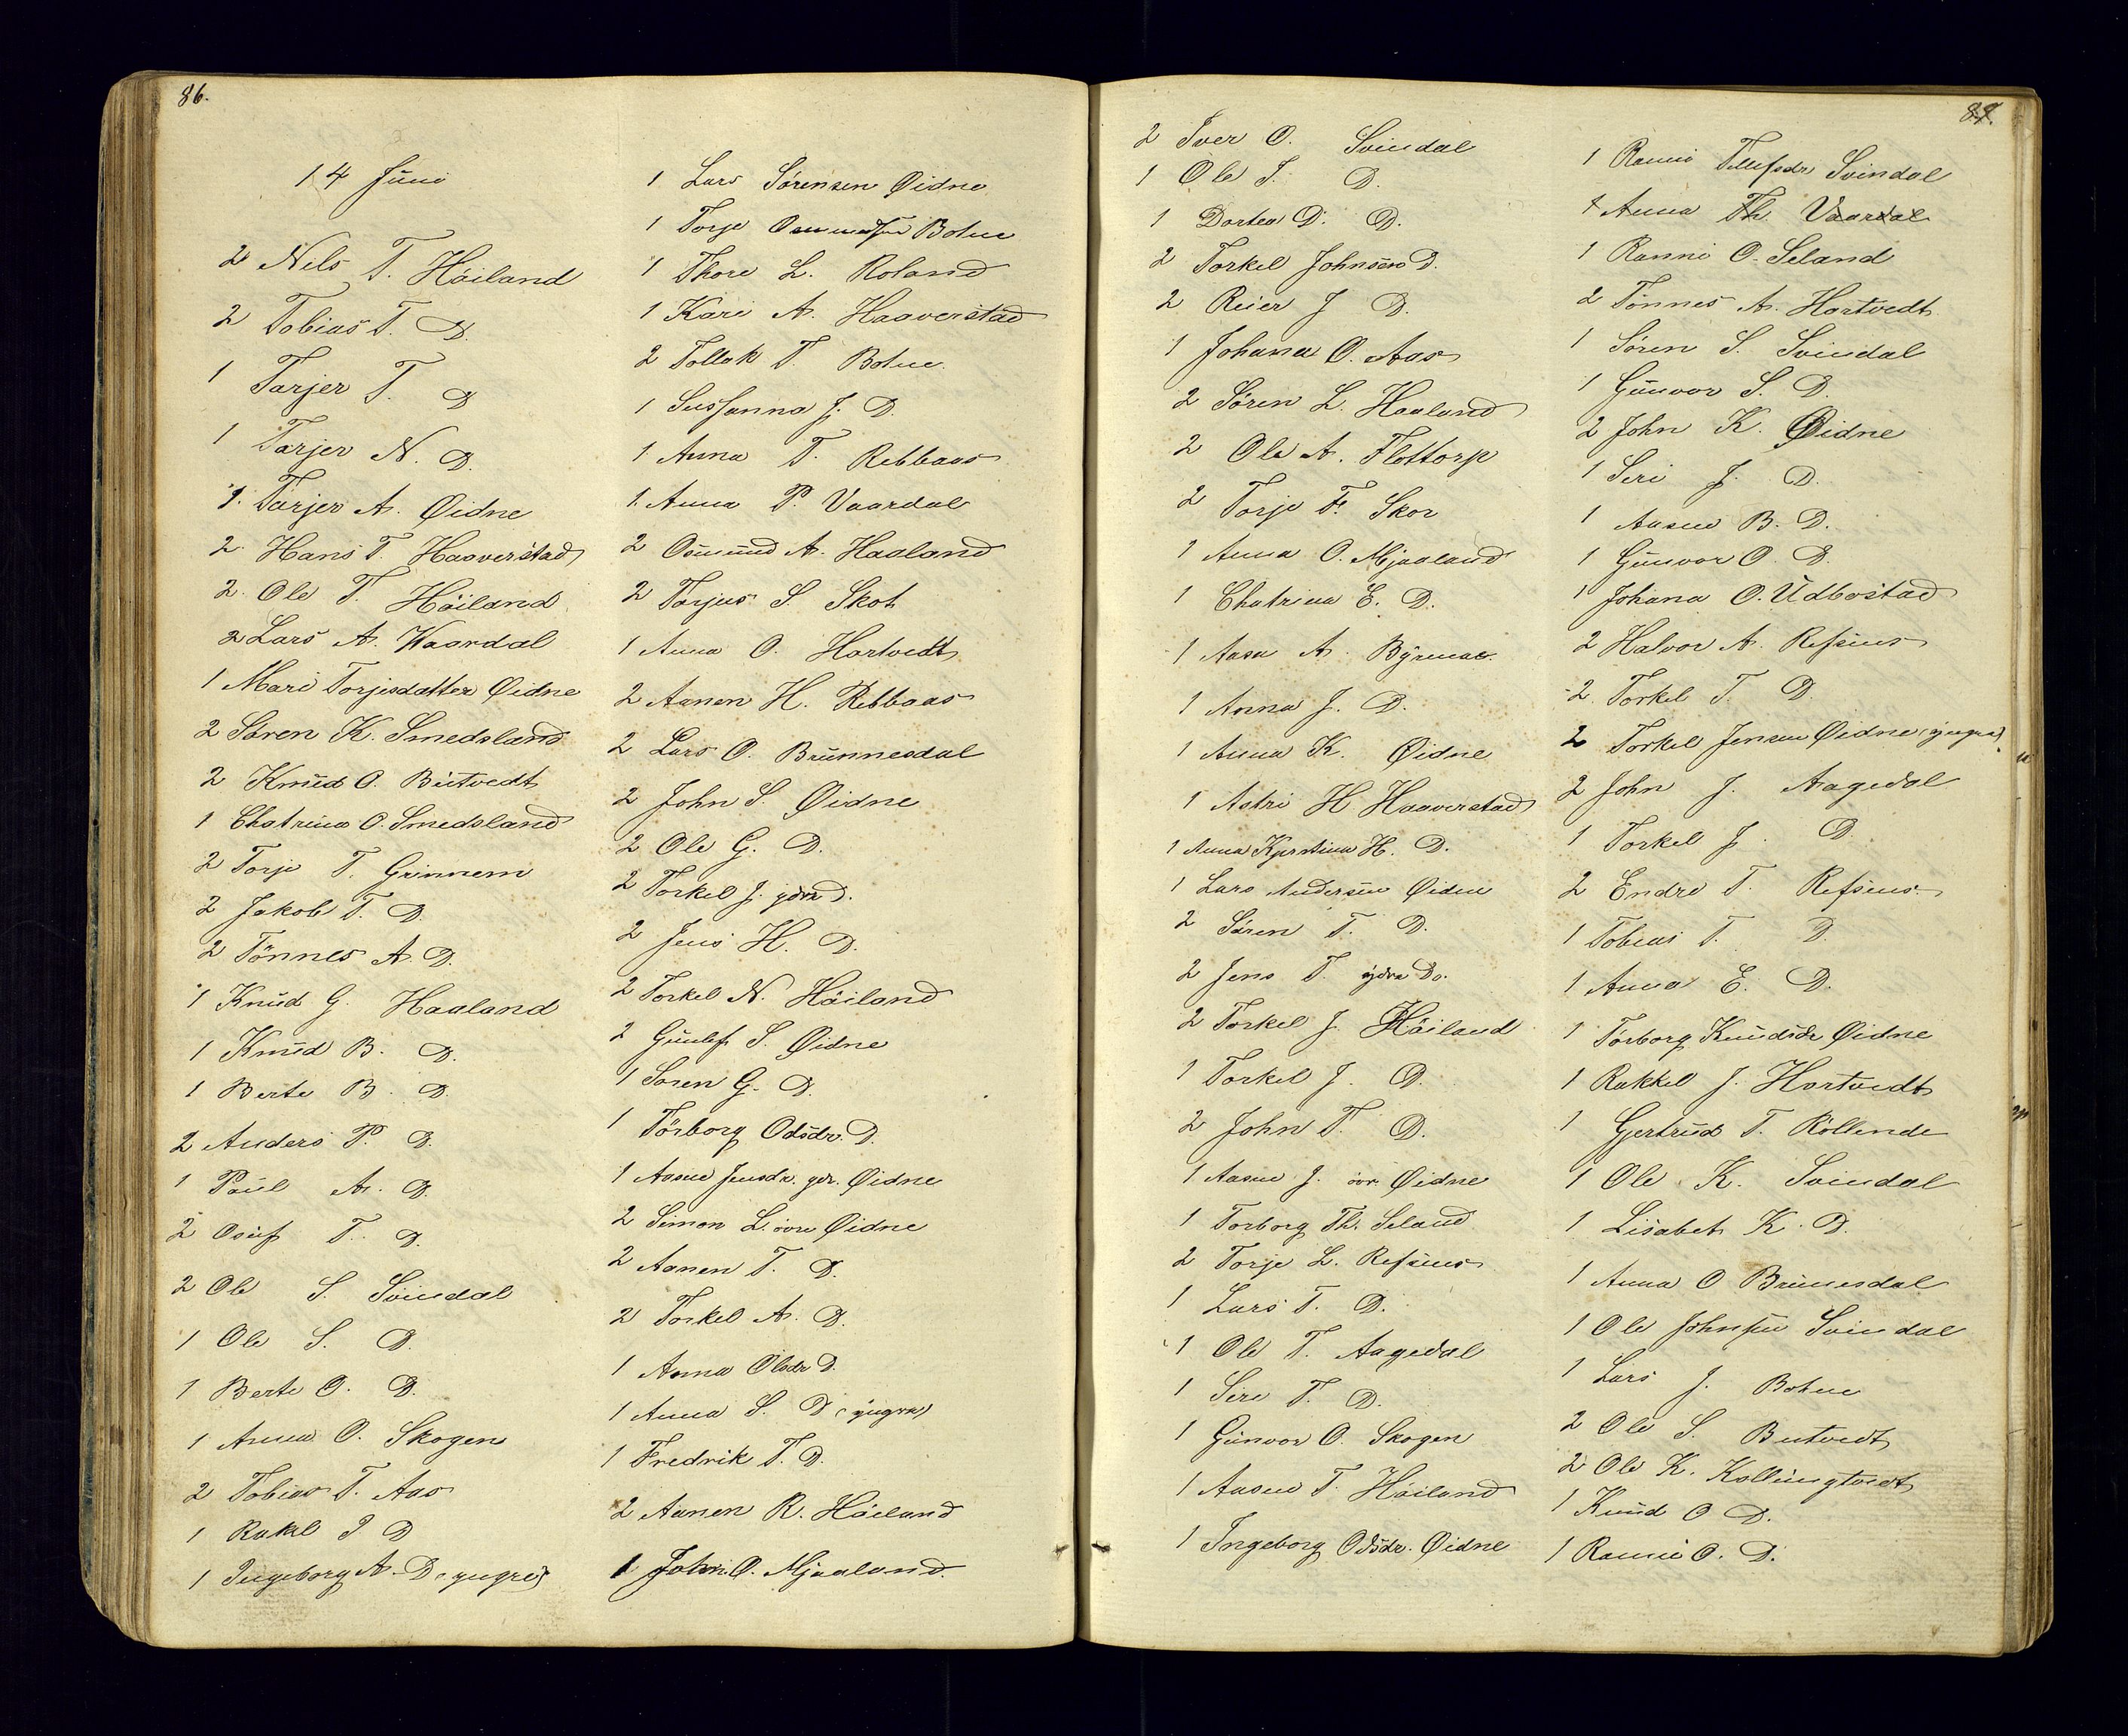 86.
14 Juni
2 Nels T. Höiland
2 Tobias T. D.
1 Tarjer T. D
1 Tarjer N. D.
1. Tarjer A. Øidne
2. Hans T. Haaverstad
2. Ole T. Höiland
2 Lars A. Waardal
1 Mari Torjesdatter Øidne
2 Sören K. Smedsland
2 Knud O. Butvedt
1 Chatrina O. Smedsland
2 Torje T. Grinnem
2 Jakob T. D.
2 Tönnes A. D.
1 Knud G. Haaland
1 Knud B. D.
1 Berte B. D.
2 Anders P. D.
1 Paul A. D.
2 Osuf T. D.
2 Ole S. Svindal
1 Ole S. D.
1 Berte O. D.
1 Anna O. Skogen
2 Tobias T. Aas
1 Rakel D
1 Ingeborg A. D. (yngre)
1 Lars Sörensen Øidne
1 Torje Botne
1 Thore L. Roland
1 Kari A. Haaverstad
2 Tollak T. Botne
1 Susſanna J. D.
1 Anna T. Rebbaas
1. Anna P. Vaardal
2 Osmund A. Haaland
2 Torjus S. Skot
1 Anna O. Hortvedt
2 Aanen H. Rebbaas
2 Lars O. Brunnesdal
2 John S. Øidne
2 Ole G. D.
2 Torkel J. ydre D.
2 Jens H. D.
2 Torkel N. Höiland
2 Gunlef S. Øidne
1 Soren G. D.
1 Törborg Odsdr. D.
1 Aasne Jensdr. ydr. Øidne
2 Simon L. övre Øidne
2 Aanen T. D.
2 Torkel A. D.
1 Anna Olsdr D.
1 Anna S. D (yngre)
1 Fredrik T. D.
2 Aanen R. Höiland
1 John O. Mjaaland.
87.
2 Iver O. Svindal
1 Ole I. D.
1 Dortea D. D.
2 Torkel Johnsen D.
2 Reier J D.
1 Johana O. Aas
2 Sören L. Haaland
2 Ole A. Flottorp
2 Torje F. Skor
1 Anna O. Mjaaland
1 Chatrina E. D.
1 Aasa A. Byrmoe.
1 Anna J. D.
1 Anna K. Øidne
1 Astri H Haaverstad
1 Anna Kjerstina H. D.
1 Lars Andersen Øidne
2 Sören T. D.
2 Jens T. ydre Do.
2 Torkel J. Höiland
1 Torkel J. D.
2 John T. D.
1 Aasne J. övr. Øidne
1 Torborg Th. Seland
2 Torje L. Refsnes
1 Lars T. D.
1 Ole T. Aagedal
1 Siri T. D.
1 Gunvor O. Skogen
1 Aasne T. Höiland
1 Ingeborg Odsdr. Øidne
1 Ranni Tellefsdr Svindal
1 Anna Th. Vaardal
1 Ranni O. Seland
2 Tönnes A. Hortvedt
1 Sören S. Svindal
1 Gunvor S. D.
2 John K. Øidne
1 Seri J. D.
1 Aasne B. D.
1 Gunvor O. D.
1 Johana O. Udbostad
2 Halvor A. Refsnes
2 Torkel T. D.
2 Torkel Jensen Øidne (yngre)
2 John J. Aagedal
1 Torkel J. D.
2 Endre T. Refsnes
1 Tobias T. D.
1 Anna E. D.
1 Törborg Knudsdr Øidne
1 Rakkel J. Hortvedt
1 Gjertrud T. Röllende
1 Ole K. Svindal
1 Lisabet K. D.
1 Anna O Brunesdal
1 Ole Johnſen Svindal
1 Lars J. Botne
2 Ole S. Butvedt
2 Ole K. Kollungtvedt
1 Knud O D.
1 Ranni O. D.